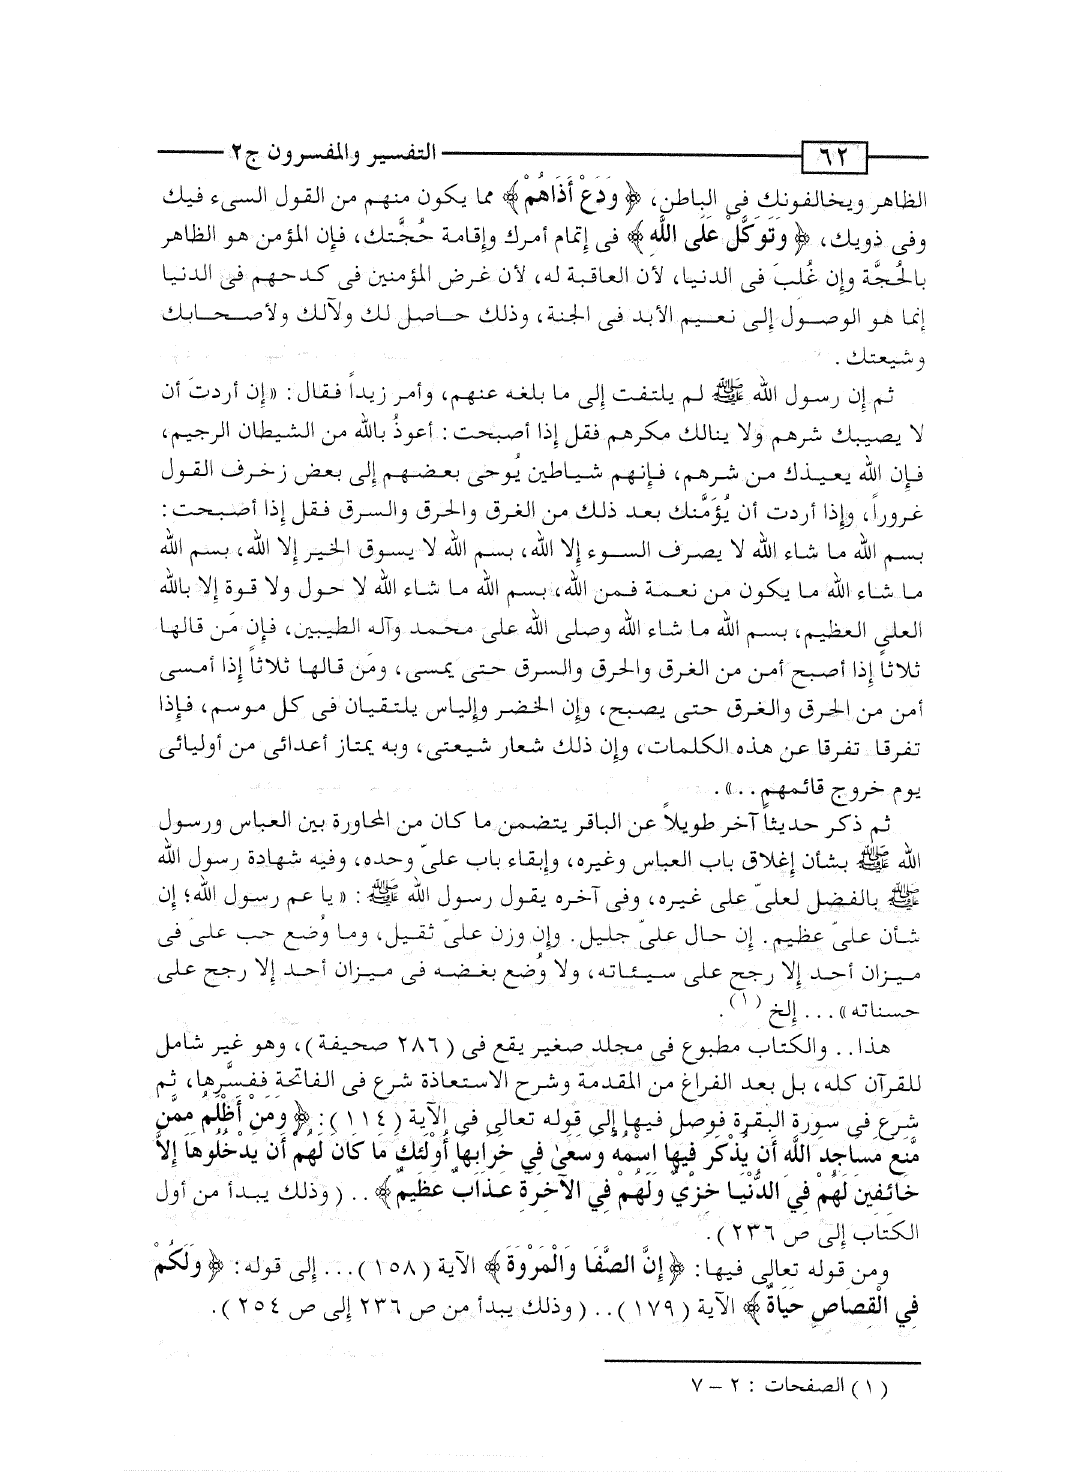 ٦٢ التفسير والمفسرون ج٢
الظاهر ويخالفونك فى الباطن، ﴿ وَدَعْ أَذَاهُمْ ﴾ مما يكون منهم من القول السىء فيك
وفى ذويك، ﴿ وَتَوَكَّلْ عَلَى اللَّهِ ﴾ فى إتمام أمرك وإقامة حُجَّتك، فإن المؤمن هو الظاهر
بالحُجَّة وإن غُلبَ فى الدنيا، لأن العاقبة له، لأن غرض المؤمنين فى كدحهم فى الدنيا
إنما هو الوصول إلى نعيم الأبد فى الجنة، وذلك حاصل لك ولآلك ولأصحابك
وشيعتك.
ثم إن رسول الله ﷺ لم يلتفت إلى ما بلغه عنهم، وأمر زيداً فقال: «إن أردتَ أن
لا يصيبك شرهم ولا ينالك مكرهم فقل إذا أصبحت: أعوذُ بالله من الشيطان الرجيم،
فإن الله يعيذك من شرهم، فإنهم شياطين يُوحى بعضهم إلى بعض زخرف القول
غروراً، وإذا أردت أن يُؤَمَّنك بعد ذلك من الغرق والحرق والسرق فقل إذا أصبحت:
بسم الله ما شاء الله لا يصرف السوء إلا الله، بسم الله لا يسوق الخير إلا الله، بسم الله
ما شاء الله ما يكون من نعمة فمن الله، بسم الله ما شاء الله لا حول ولا قوة إلا بالله
العلى العظيم، بسم الله ما شاء الله وصلى الله على محمد وآله الطيبين، فإن مَن قالها
ثلاثاً إذا أصبح أمن من الغرق والحرق والسرق حتى يمسى، ومَن قالها ثلاثاً إذا أمسى
أمن من الحرق والغرق حتى يصبح، وإن الخضر وإلياس يلتقيان فى كل موسم، فإذا
تفرقا تفرقا عن هذه الكلمات، وإن ذلك شعار شيعتى، وبه يمتاز أعدائى من أوليائى
يوم خروج قائمهم..».
ثم ذكر حديثاً آخر طويلاً عن الباقر يتضمن ما كان من المحاورة بين العباس ورسول
الله ﷺ بشأن إغلاق باب العباس وغيره، وإبقاء باب علىّ وحده، وفيه شهادة رسول الله
ﷺ بالفضل لعلىّ على غيره، وفى آخره يقول رسول الله ﷺ: «يا عم رسول الله؛ إن
شأن علىّ عظيم. إن حال علىّ جليل. وإن وزن علىّ ثقيل، وما وُضع حب علىّ فى
ميزان أحد إلا رجح على سيئاته، ولا وُضع بغضه فى ميزان أحد إلا رجح على
حسناته»... إلخ (١).
هذا.. والكتاب مطبوع فى مجلد صغير يقع فى (٢٨٦ صحيفة)، وهو غير شامل
للقرآن كله، بل بعد الفراغ من المقدمة وشرح الاستعاذة شرع فى الفاتحة ففسَّرها، ثم
شرع فى سورة البقرة فوصل فيها إلى قوله تعالى فى الآية (١١٤): ﴿ وَمَنْ أَظْلَمُ مِمَّن
مَّنَعَ مَسَاجِدَ اللَّهِ أَن يُذْكَرَ فِيهَا اسْمُهُ وَسَعَىٰ فِي خَرَابِهَا أُوْلَئِكَ مَا كَانَ لَهُمْ أَن يَدْخُلُوهَا إِلاَّ
خَائِفِينَ لَهُمْ فِي الدُّنْيَا خِزْيٌ وَلَهُمْ فِي الآخِرَةِ عَذَابٌ عَظِيمٌ ﴾.. (وذلك يبدأ من أول
الكتاب إلى ص ٢٣٦).
ومن قوله تعالى فيها: ﴿ إِنَّ الصَّفَا وَالْمَرْوَةَ ﴾ الآية (١٥٨)... إلى قوله: ﴿ وَلَكُمْ
فِي الْقِصَاصِ حَيَاةٌ ﴾ الآية (١٧٩).. (وذلك يبدأ من ص ٢٣٦ إلى ص ٢٥٤).
(١) الصفحات: ٢ – ٧